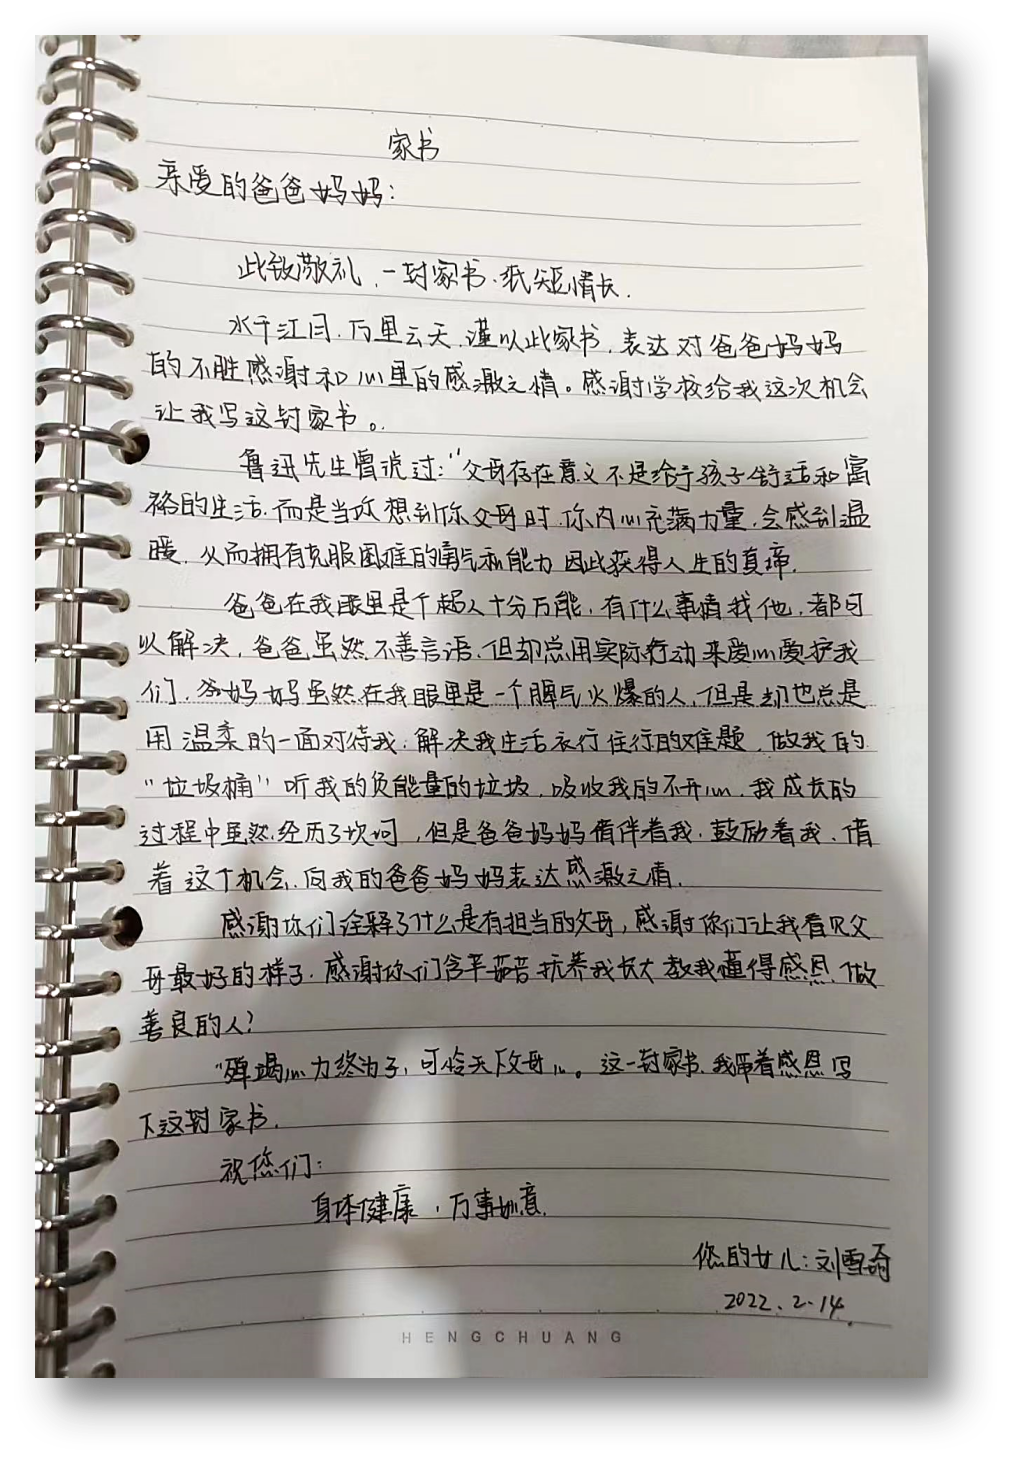 家书
亲爱的爸爸妈妈：
此致敬礼，一封家书，纸短情长．
水千江月．万里云天．谨以此家书．表达对爸爸妈妈
的不胜感谢和心里的感激之情。感谢学校给我这次机会
让我写这封家书。
鲁迅先生曾说过：“父母存在意义不是给予孩子舒适和富
裕的生活．而是当你想到你父母时．你内心充满力量．会感到温
暖．从而拥有克服困难的勇气和能力 因此获得人生的真缔．
爸爸在我眼里是个超人十分万能，有什么事情找他，都可
以解决．爸爸虽然不善言语．但却总用实际行动来爱心爱护我
们．妈妈虽然在我眼里是一个脾气火爆的人，但是却也总是
用温柔的一面对待我．解决我生活衣行住行的难题．做我的
“垃圾桶”听我的负能量的垃圾．吸收我的不开心．我成长的
过程中虽然经历了坎坷，但是爸爸妈妈陪伴着我．鼓励着我．借
着这个机会．向我的爸爸妈妈表达感激之情．
感谢你们诠释了什么是有担当的父母，感谢你们让我看见父
母最好的样子．感谢你们含辛茹苦抚养我长大 教我懂得感恩．做
善良的人！
“殚竭心力终为子，可怜天下父母心”。这一封家书．我带着感恩写
下这封家书．
祝您们：
身体健康，万事如意．
您的女儿：刘雪琦
2022．2.14．
HENGCHUANG